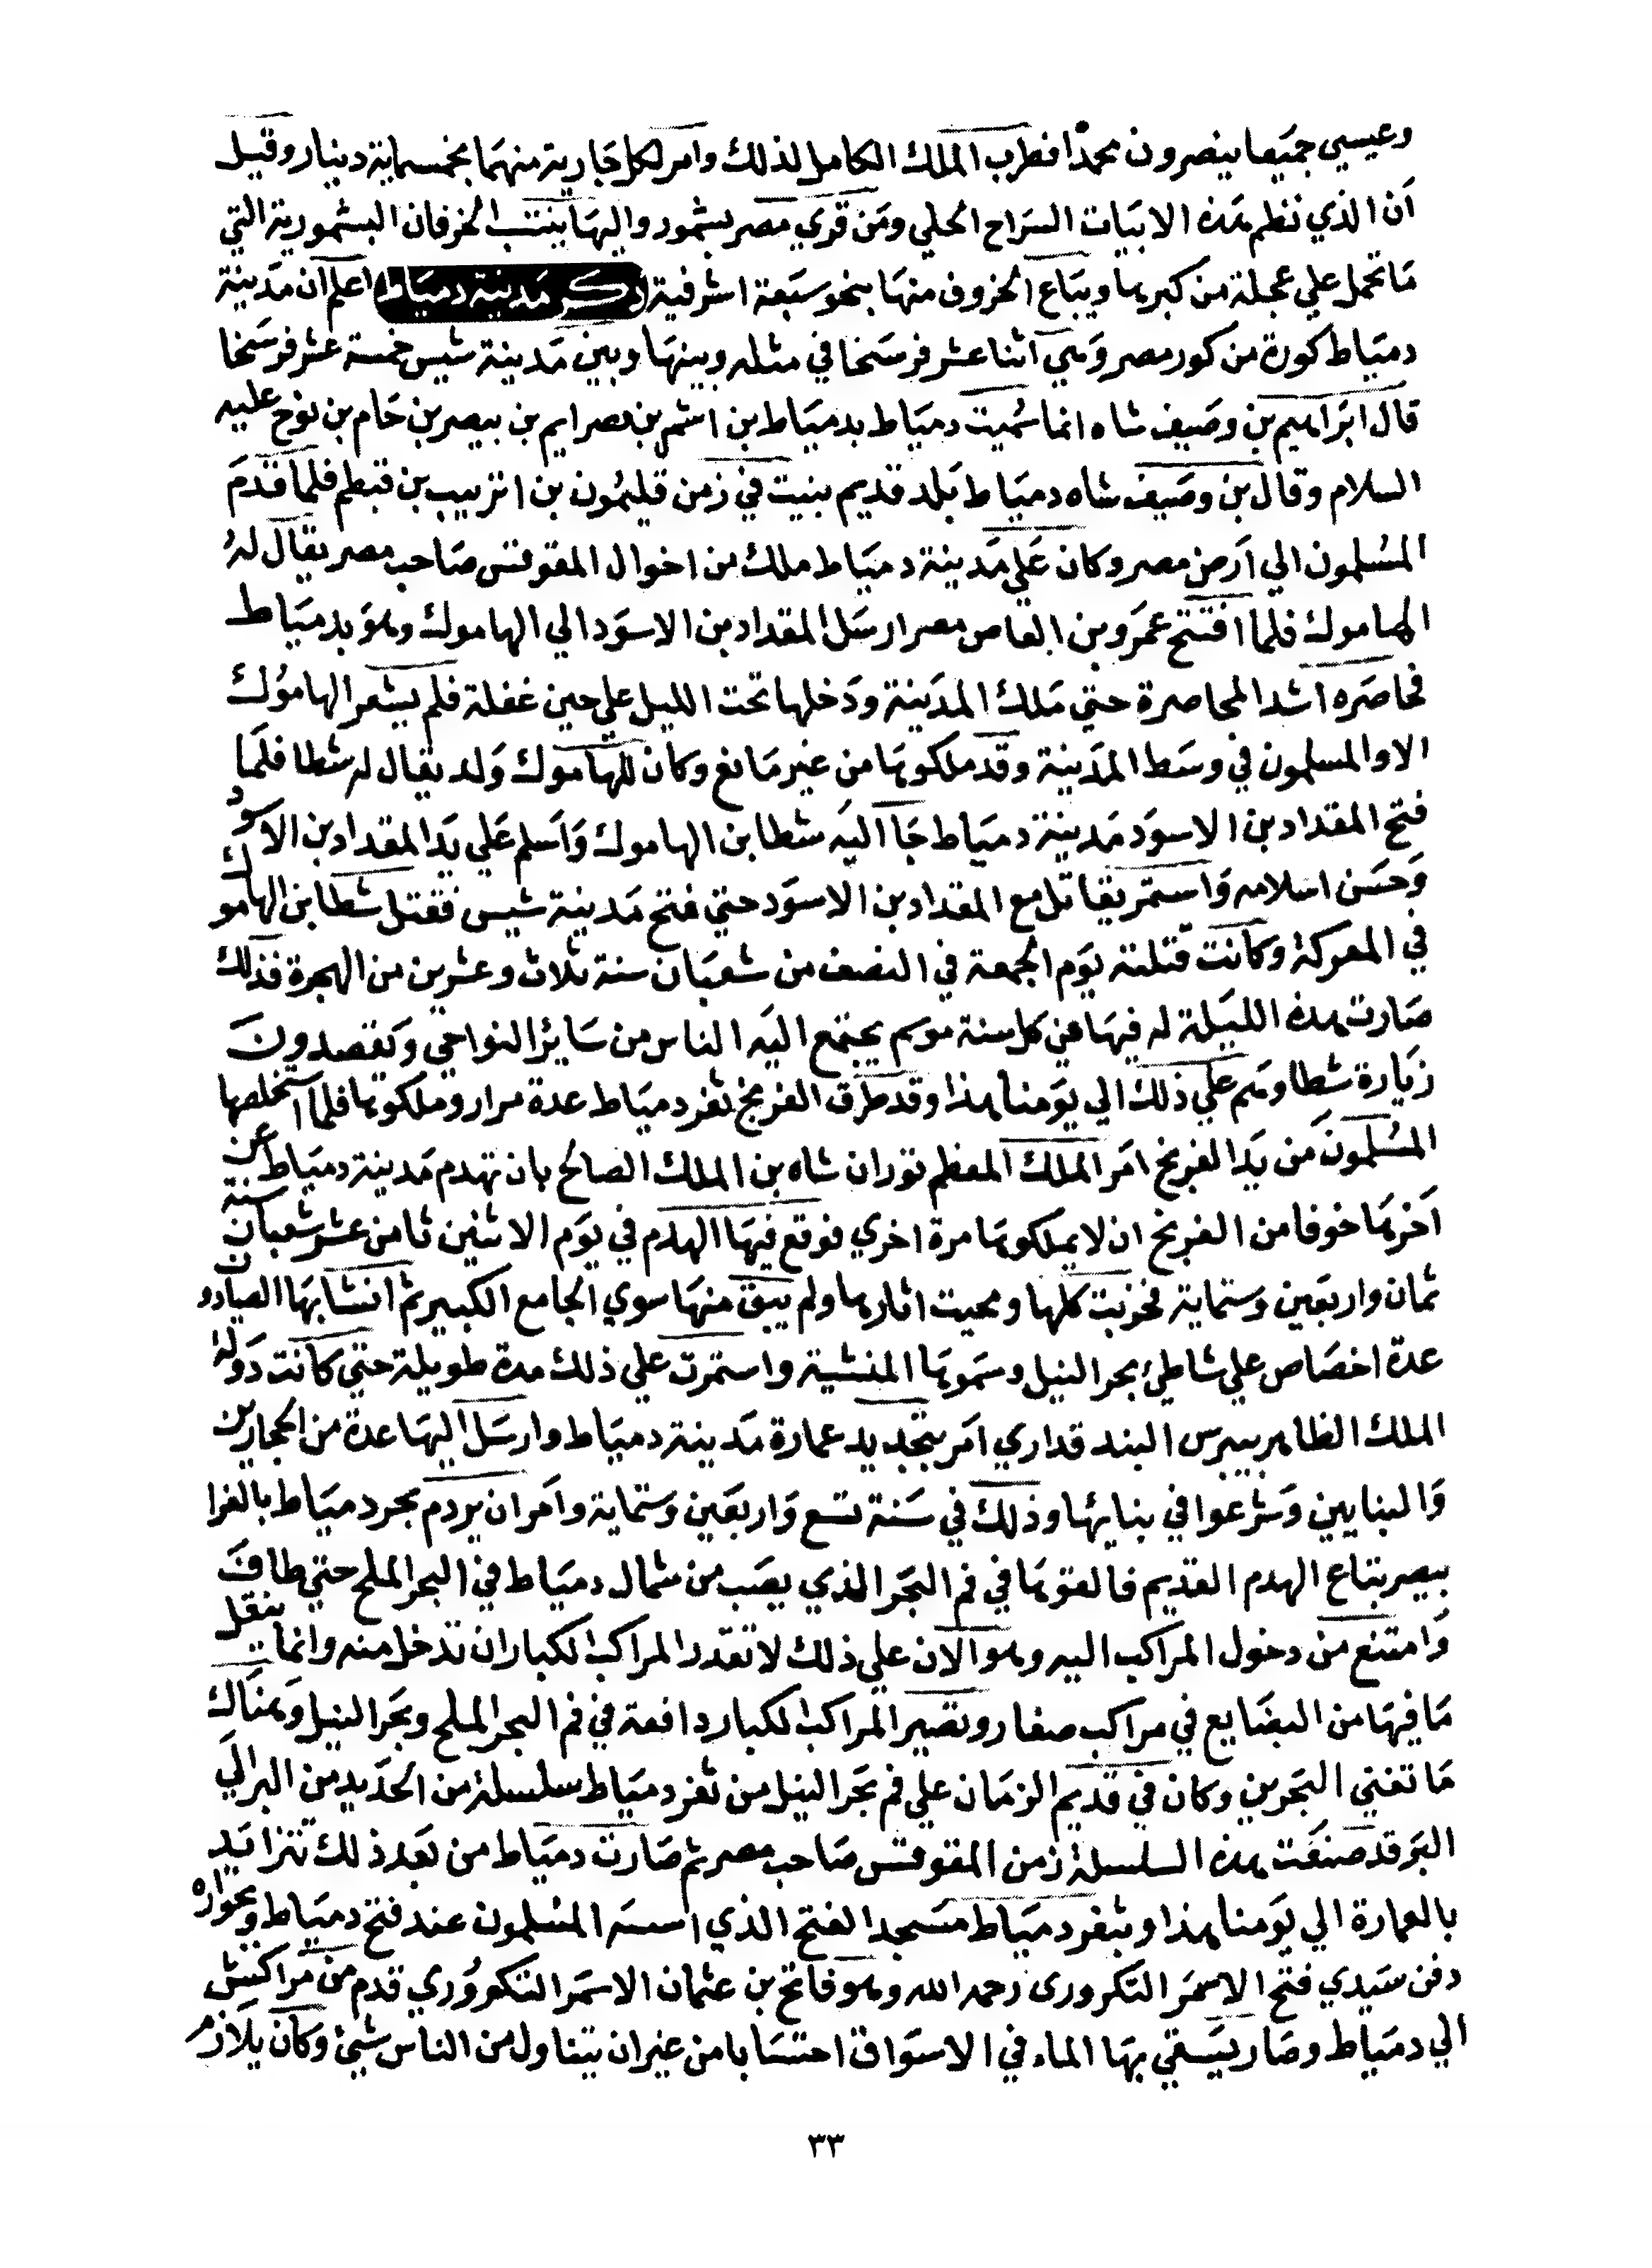 وعيسي جميعا ينصرون محمدا فطرب الملك الكامل لذلك وامر لكل جارية منهما بخمسماية دينار وقيل
ان الذي نظم هذه الابيات السراج الحلي ومن قري مصر بشمور واليها ينتسب الخرفان البشمورية التي
ما تحمل علي عجلة من كبرها ويباع الخروف منها بنحو سبعة اشرفية ذكر مدينة دمياط اعلم ان مدينة
دمياط كورة من كور مصر وهي اثنا عشر فرسخا في مثله وبينها وبين مدينة شيس خمسة عشر فرسخا
قال ابراهيم بن وصيف شاه انما سميت دمياط بدمياط بن اشم بن مصرايم بن بيصر بن حام بن نوح عليه
السلام وقال بن وصيف شاه دمياط بلد قديم بنيت في زمن قليمون بن اتريب بن قبطم فلما قدم
المسلمون الي ارض مصر وكان علي مدينة دمياط ملك من اخوال المقوقس صاحب مصر يقال له
الهاموك فلما افتتح عمرو بن العاص مصر ارسل المقداد بن الاسود الي الهاموك وهو بدمياط
فحاصره اشد المحاصرة حتي ملك المدينة ودخلها تحت الليل علي حين غفلة فلم يشعر الهاموك
الا والمسلمون في وسط المدينة وقد ملكوها من غير مانع وكان للهاموك ولد يقال له شطا فلما
فتح المقداد بن الاسود مدينة دمياط جا اليه شطا بن الهاموك واسلم علي يد المقداد بن الاسود
وحسن اسلامه واستمر يقاتل مع المقداد بن الاسود حتي فتح مدينة شيس فقتل شطا بن الهاموك
في المعركة وكانت قتلته يوم الجمعة في النصف من شعبان سنة ثلاث وعشرين من الهجرة فذلك
صارت هذه الليلة له فيها في كل سنة موسم يجتمع اليه الناس من ساير النواحي ويقصدون
زيارة شطا وهم علي ذلك الي يومنا هذا وقد طرق الفرنج ثغر دمياط عدة مرار وملكوها فلما استخلصها
المسلمون من يد الفرنج امر الملك المعظم توران شاه بن الملك الصالح بان تهدم مدينة دمياط عن
اخرها خوفا من الفرنج ان لا يملكوها مرة اخري فوقع فيها الهدم في يوم الاثنين ثامن عشر شعبان سنة
ثمان واربعين وستماية فخربت كلها ومحيت اثارها ولم يبق منها سوي الجامع الكبير ثم انشا بها الصيادون
عدة اخصاص علي شاطئ بحر النيل وسموها المنشية واستمرت علي ذلك مدة طويلة حتي كانت دولة
الملك الظاهر بيبرس البندقداري امر بتجديد عمارة مدينة دمياط وارسل اليها عدة من الحجارين
والبنايين وشرعوا في بنائها وذلك في سنة تسع واربعين وستماية وامر ان يردم بحر دمياط بالغرا
بيصر بتاع الهدم القديم فالقوها في فم البحر الذي يصب من شمال دمياط في البحر الملح حتي طاف
وامتنع من دخول المراكب اليه وهو الان علي ذلك لا تقدر المراكب الكبار ان تدخل منه وانما ينقل
ما فيها من البضايع في مراكب صغار وتصير المراكب الكبار دافعة في فم البحر الملح وبحر النيل وهناك
ما تغني البحرين وكان في قديم الزمان علي فم بحر النيل من ثغر دمياط سلسلة من الحديد من البر الي
البر قد صنفت هذه السلسلة زمن المقوقس صاحب مصر ثم صارت دمياط من بعد ذلك تتزايد
بالعمارة الي يومنا هذا وبثغر دمياط مسجد الفتح الذي اسسه المسلمون عند فتح دمياط وبجواره
دفن سيدي فتح الاسمر التكروري رحمه الله وهو فاتح بن عثمان الاسمر التكروري قدم من مراكش
الي دمياط وصار يسقي بها الماء في الاسواق احتسابا من غير ان يتناول من الناس شئ وكان يلازم
٣٣